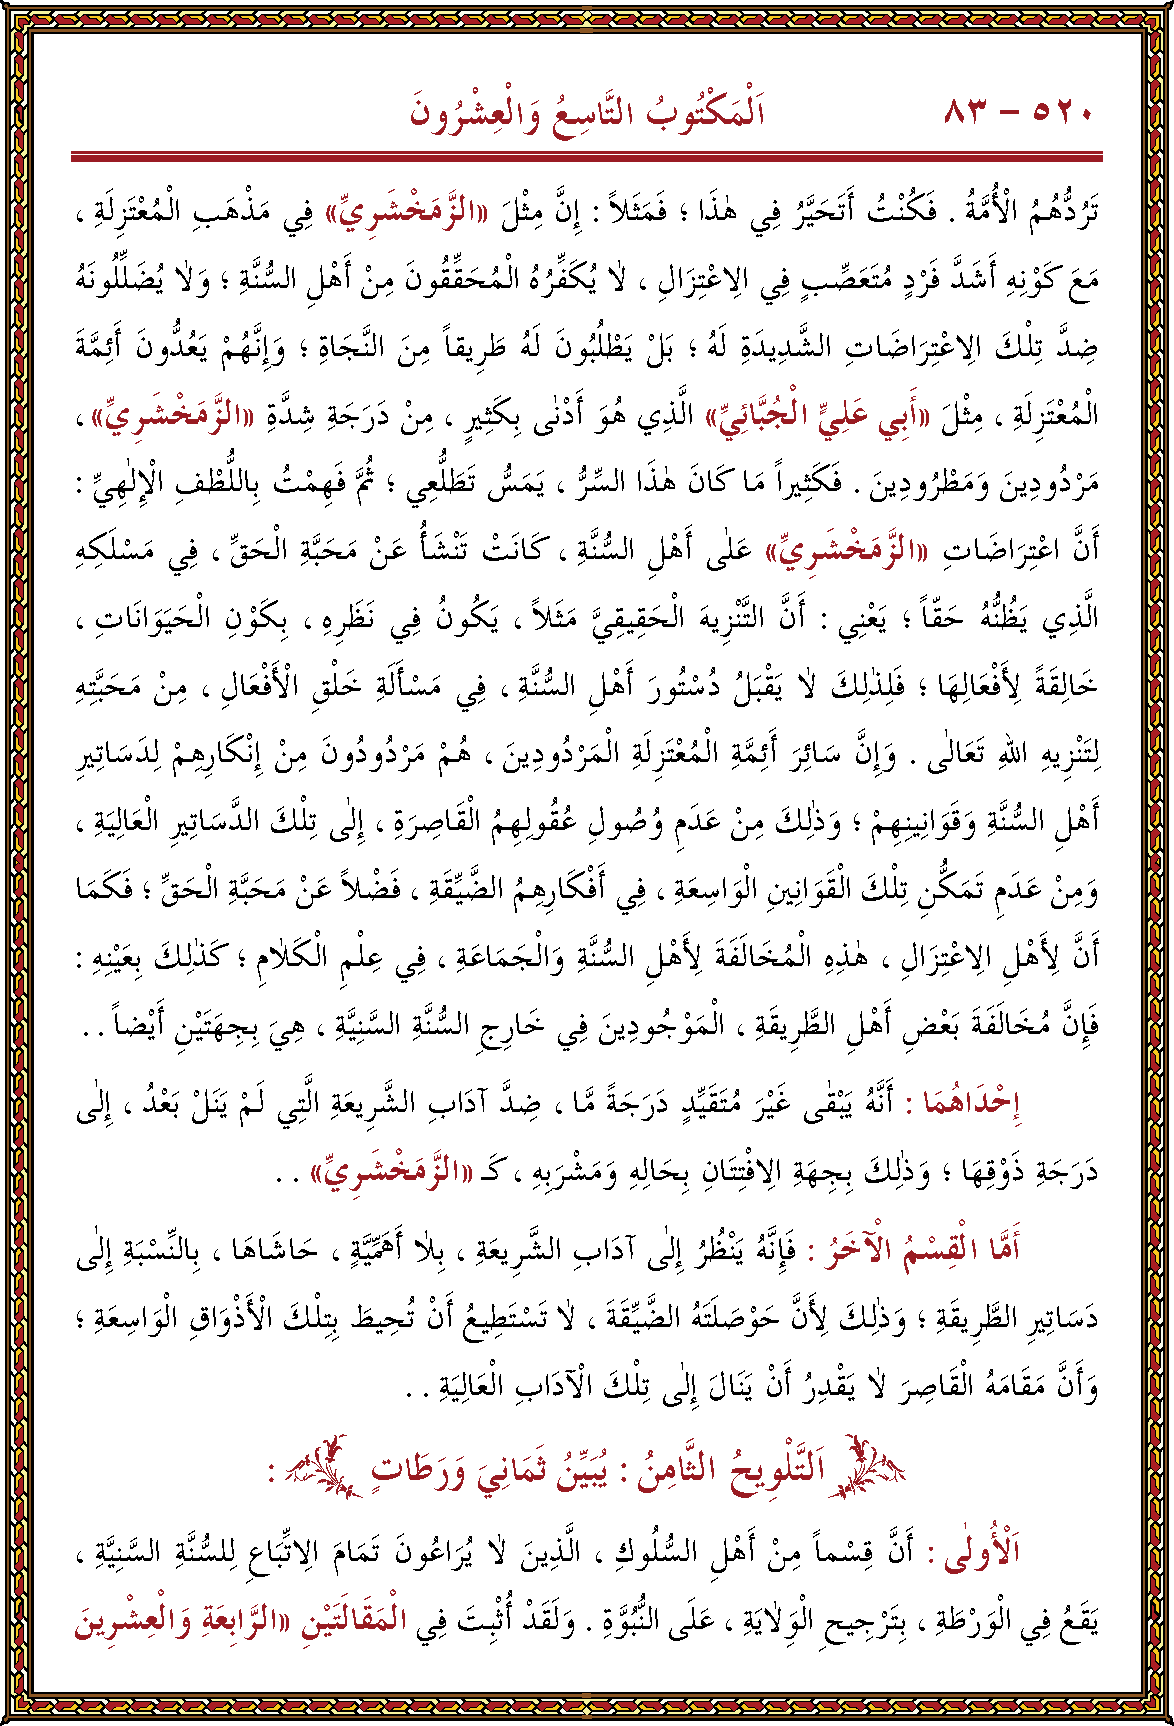 ٥٢٠ – ٨٣ اَلْمَكْتُوبُ التَّاسِعُ وَالْعِشْرُونَ
تَرُدُّهُمُ الْأُمَّةُ . فَكُنْتُ أَتَحَيَّرُ فِي هٰذَا ؛ فَمَثَلاً : إِنَّ مِثْلَ «الزَّمَخْشَرِيِّ» فِي مَذْهَبِ الْمُعْتَزِلَةِ ،
مَعَ كَوْنِهِ أَشَدَّ فَرْدٍ مُتَعَصِّبٍ فِي الِاعْتِزَالِ ، لَا يُكَفِّرُهُ الْمُحَقِّقُونَ مِنْ أَهْلِ السُّنَّةِ ؛ وَلَا يُضَلِّلُونَهُ
ضِدَّ تِلْكَ الِاعْتِرَاضَاتِ الشَّدِيدَةِ لَهُ ؛ بَلْ يَطْلُبُونَ لَهُ طَرِيقاً مِنَ النَّجَاةِ ؛ وَإِنَّهُمْ يَعُدُّونَ أَئِمَّةَ
الْمُعْتَزِلَةِ ، مِثْلَ «أَبِي عَلِيٍّ الْجُبَّائِيِّ» الَّذِي هُوَ أَدْنٰى بِكَثِيرٍ ، مِنْ دَرَجَةِ شِدَّةِ «الزَّمَخْشَرِيِّ» ،
مَرْدُودِينَ وَمَطْرُودِينَ . فَكَثِيراً مَا كَانَ هٰذَا السِّرُّ ، يَمَسُّ تَطَلُّعِي ؛ ثُمَّ فَهِمْتُ بِاللُّطْفِ الْإِلٰهِيِّ :
أَنَّ اعْتِرَاضَاتِ «الزَّمَخْشَرِيِّ» عَلٰى أَهْلِ السُّنَّةِ ، كَانَتْ تَنْشَأُ عَنْ مَحَبَّةِ الْحَقِّ ، فِي مَسْلَكِهِ
الَّذِي يَظُنُّهُ حَقّاً ؛ يَعْنِي : أَنَّ التَّنْزِيهَ الْحَقِيقِيَّ مَثَلاً ، يَكُونُ فِي نَظَرِهِ ، بِكَوْنِ الْحَيَوَانَاتِ ،
خَالِقَةً لِأَفْعَالِهَا ؛ فَلِذٰلِكَ لَا يَقْبَلُ دُسْتُورَ أَهْلِ السُّنَّةِ ، فِي مَسْأَلَةِ خَلْقِ الْأَفْعَالِ ، مِنْ مَحَبَّتِهِ
لِتَنْزِيهِ اللهِ تَعَالٰى . وَإِنَّ سَائِرَ أَئِمَّةِ الْمُعْتَزِلَةِ الْمَرْدُودِينَ ، هُمْ مَرْدُودُونَ مِنْ إِنْكَارِهِمْ لِدَسَاتِيرِ
أَهْلِ السُّنَّةِ وَقَوَانِينِهِمْ ؛ وَذٰلِكَ مِنْ عَدَمِ وُصُولِ عُقُولِهِمُ الْقَاصِرَةِ ، إِلٰى تِلْكَ الدَّسَاتِيرِ الْعَالِيَةِ ،
وَمِنْ عَدَمِ تَمَكُّنِ تِلْكَ الْقَوَانِينِ الْوَاسِعَةِ ، فِي أَفْكَارِهِمُ الضَّيِّقَةِ ، فَضْلاً عَنْ مَحَبَّةِ الْحَقِّ ؛ فَكَمَا
أَنَّ لِأَهْلِ الِاعْتِزَالِ ، هٰذِهِ الْمُخَالَفَةَ لِأَهْلِ السُّنَّةِ وَالْجَمَاعَةِ ، فِي عِلْمِ الْكَلَامِ ؛ كَذٰلِكَ بِعَيْنِهِ :
فَإِنَّ مُخَالَفَةَ بَعْضِ أَهْلِ الطَّرِيقَةِ ، الْمَوْجُودِينَ فِي خَارِجِ السُّنَّةِ السَّنِيَّةِ ، هِيَ بِجِهَتَيْنِ أَيْضاً . .
إِحْدَاهُمَا : أَنَّهُ يَبْقٰى غَيْرَ مُتَقَيِّدٍ دَرَجَةً مَّا ، ضِدَّ آدَابِ الشَّرِيعَةِ الَّتِي لَمْ يَنَلْ بَعْدُ ، إِلٰى
دَرَجَةِ ذَوْقِهَا ؛ وَذٰلِكَ بِجِهَةِ الِافْتِتَانِ بِحَالِهِ وَمَشْرَبِهِ ، كَـ «الزَّمَخْشَرِيِّ» . .
أَمَّا الْقِسْمُ الْآخَرُ : فَإِنَّهُ يَنْظُرُ إِلٰى آدَابِ الشَّرِيعَةِ ، بِلَا أَهَمِّيَّةٍ ، حَاشَاهَا ، بِالنِّسْبَةِ إِلٰى
دَسَاتِيرِ الطَّرِيقَةِ ؛ وَذٰلِكَ لِأَنَّ حَوْصَلَتَهُ الضَّيِّقَةَ ، لَا تَسْتَطِيعُ أَنْ تُحِيطَ بِتِلْكَ الْأَذْوَاقِ الْوَاسِعَةِ ؛
وَأَنَّ مَقَامَهُ الْقَاصِرَ لَا يَقْدِرُ أَنْ يَنَالَ إِلٰى تِلْكَ الْآدَابِ الْعَالِيَةِ . .
اَلتَّلْوِيحُ الثَّامِنُ : يُبَيِّنُ ثَمَانِيَ وَرَطَاتٍ :
اَلْأُولٰى : أَنَّ قِسْماً مِنْ أَهْلِ السُّلُوكِ ، الَّذِينَ لَا يُرَاعُونَ تَمَامَ الِاتِّبَاعِ لِلسُّنَّةِ السَّنِيَّةِ ،
يَقَعُ فِي الْوَرْطَةِ ، بِتَرْجِيحِ الْوِلَايَةِ ، عَلَى النُّبُوَّةِ . وَلَقَدْ أُثْبِتَ فِي الْمَقَالَتَيْنِ «الرَّابِعَةِ وَالْعِشْرِينَ